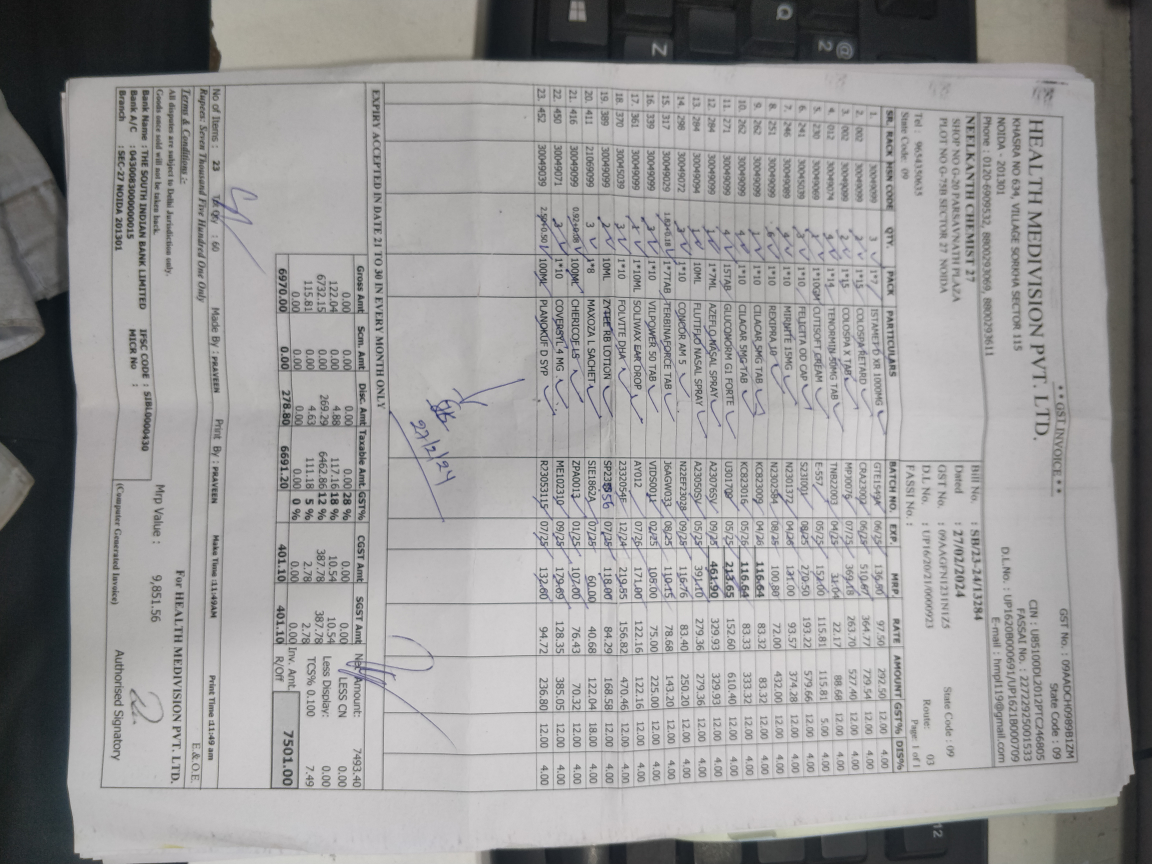 ** GST INVOICE **
HEALTH MEDIVISION PVT. LTD.
KHASRA NO 634, VILLAGE SORKHA SECTOR 115
NOIDA - 201301
Phone : 0120-6909532, 8800293069, 8800293611
GST No. : 09AADCH0989B1ZM
State Code : 09
CIN : U85100DL2012PTC246805
FASSAI No. : 22722925001533
D.L.No. : UP1620B000691/UP1621B000709
E-mail : hmpl119@gmail.com
NEELKANTH CHEMIST 27
SHOP NO G-20 PARSAVNATH PLAZA
PLOT NO G-75B SECTOR 27 NOIDA
Tel : 9654350635
State Code: 09
Bill No. : SB/23-24/13284
Dated : 27/02/2024
GST No. : 09AAGFN1231N1Z5 State Code : 09
D.L No. : UP16/20/21/0000923 Route: 03
FASSI No. : Page 1 of 1
SR. RACK HSN CODE QTY. PACK PARTICULARS BATCH NO. EXP. MRP. RATE AMOUNT GST% DIS%
1. 30049099 3 1*7 ISTAMET D XR 1000MG GTE1549A 06/25 136.80 97.50 292.50 12.00 4.00
2. 002 30049099 2 1*15 COLOSPA RETARD CRA23003 06/26 510.67 364.77 729.54 12.00 4.00
3. 002 30049099 2 1*15 COLOSPA X TAB MPX0076 07/25 369.18 263.70 527.40 12.00 4.00
4. 012 30049074 4 1*14 TENORMIN 50MG TAB TNB22003 04/25 31.04 22.17 88.68 12.00 4.00
5. 230 30049069 1 1*10GM CUTISOFT CREAM E-557 05/25 152.00 115.81 115.81 5.00 4.00
6. 241 30045039 3 1*10 FELICITA OD CAP S231001 08/25 270.50 193.22 579.66 12.00 4.00
7. 246 30049089 4 1*10 MIRNITE 15MG N2301372 04/26 131.00 93.57 374.28 12.00 4.00
8. 251 30049099 6 1*10 REXIPRA 10 N2302984 08/26 100.80 72.00 432.00 12.00 4.00
9. 262 30049099 1 1*10 CILACAR 5MG TAB KC823009 04/26 116.64 83.32 83.32 12.00 4.00
10. 262 30049099 4 1*10 CILACAR 5MG TAB KC823016 05/26 116.64 83.33 333.32 12.00 4.00
11. 271 30049099 4 15TAB GLUCONORM G1 FORTE U301709 05/25 213.65 152.60 610.40 12.00 4.00
12. 284 30049099 1 1*7ML AZEFLO NASAL SPRAY A230765 09/25 461.90 329.93 329.93 12.00 4.00
13. 284 30049094 1 10ML FLUTIFLO NASAL SPRAY A230505 05/25 391.10 279.36 279.36 12.00 4.00
14. 298 30049072 3 1*10 CONCOR AM 5 N22EF73028 09/25 116.76 83.40 250.20 12.00 4.00
15. 317 30049029 1.82+0.18 1*7TAB TERBINAFORCE TAB J6AGW033 08/25 110.15 78.68 143.20 12.00 4.00
16. 339 30049099 3 1*10 VILPOWER 50 TAB VID5001 02/25 108.00 75.00 225.00 12.00 4.00
17. 361 30049099 1 1*10ML SOLIWAX EAR DROP AY012 07/26 171.00 122.16 122.16 12.00 4.00
18. 370 30045039 3 1*10 FOLVITE DHA 2332054E 12/24 219.55 156.82 470.46 12.00 4.00
19. 389 30049099 2 10ML ZYTEE RB LOTION SP23056 07/25 118.00 84.29 168.58 12.00 4.00
20. 411 21069099 3 1*8 MAXOZA L SACHET SIE1862A 07/25 60.00 40.68 122.04 18.00 4.00
21. 416 30049099 0.92+0.08 100ML CHERICOF LS ZPA0013 01/25 107.00 76.43 70.32 12.00 4.00
22. 450 30049071 3 1*10 COVERSYL 4 MG ME102310 09/25 179.69 128.35 385.05 12.00 4.00
23. 452 30049039 2.50+0.50 100ML PLANOKUF D SYP R2305315 07/25 132.60 94.72 236.80 12.00 4.00
27/2/24
EXPIRY ACCEPTED IN DATE 21 TO 30 IN EVERY MONTH ONLY
Gross Amt Scm. Amt Disc. Amt Taxable Amt. GST% CGST Amt SGST Amt
0.00 0.00 0.00 0.00 28 % 0.00 0.00
122.04 0.00 4.88 117.16 18 % 10.54 10.54
6732.15 0.00 269.29 6462.86 12 % 387.78 387.78
115.81 0.00 4.63 111.18 5 % 2.78 2.78
0.00 0.00 0.00 0.00 0 % 0.00 0.00
6970.00 0.00 278.80 6691.20 401.10 401.10
Net Amount: 7493.40
LESS CN 0.00
Less Display: 0.00
TCS% 0.100 7.49
Inv. Amt. R/Off 7501.00
No of Items : 23 Qty : 60 Made By : PRAVEEN Print By : PRAVEEN Make Time :11:49AM Print Time :11:49 am
Rupees: Seven Thousand Five Hundred One Only
E.& O.E.
Terms & Conditions :-
All disputes are subject to Delhi Jurisdiction only.
Goods once sold will not be taken back.
Bank Name : THE SOUTH INDIAN BANK LIMITED IFSC CODE : SIBL0000430
Bank A/C : 0430083000000015 MICR No :
Branch : SEC-27 NOIDA 201301
Mrp Value : 9,851.56
(Computer Generated Invoice)
For HEALTH MEDIVISION PVT. LTD.
Authorised Signatory
Q
Z
@
2
12